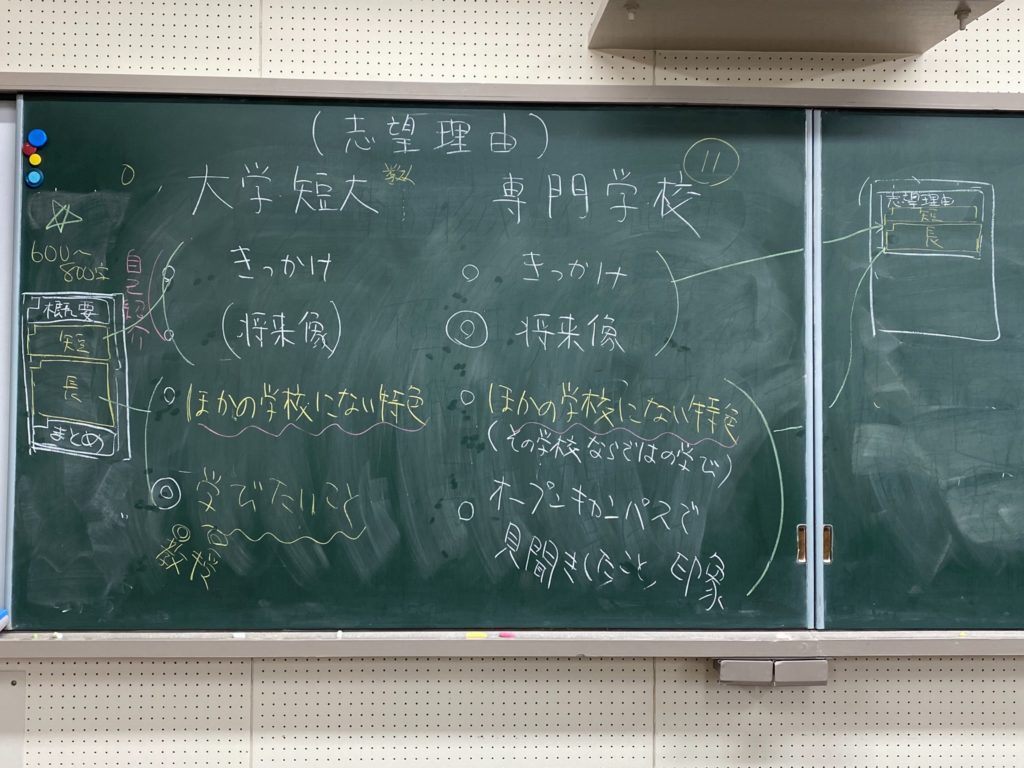 (志望理由)
大学 短大
専門学校
11
600〜
800字
自己紹介
概要
短
長
まとめ
きっかけ
(将来像)
ほかの学校にない特色
学びたいこと
教授
きっかけ
将来像
ほかの学校にない特色
(その学校ならではの学び)
オープンキャンパスで
見聞きしたこと, 印象
志望理由
短
長